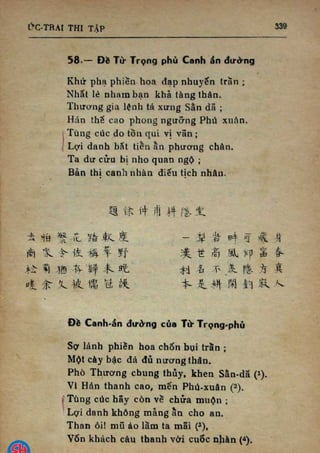 ỨC-TRAI THI TẬP 339
58.— Đề Từ Trọng phủ Canh ẩn đường
Khứ phạ phiền hoa đạp nhuyễn trần ;
Nhất lê nham bạn khả tàng thân.
Thương gia lệnh tá xưng Sằn dã ;
Hán thế cao phong ngưỡng Phú xuân.
Tùng cúc do tồn qui vị vãn ;
Lợi danh bất tiễn ẩn phương chân.
Ta dư cửu bị nho quan ngộ ;
Bản thị canh nhàn điếu tịch nhân.
題徐仲甫耕隱堂
去怕繁花踏軟塵 一犁岩畔可藏身
商家令佐稱莘野 漢世高風仰富春
松菊猶存歸未晚 利名不羨隱方真
嗟余久被儒冠誤 本是耕閒釣寂人
Đề Canh-ẩn đường của Từ Trọng-phủ
Sợ lánh phiền hoa chốn bụi trần ;
Một cày bậc đá đủ nương thân.
Phò Thương chung thủy, khen Sằn-dã (¹).
Vì Hán thanh cao, mến Phú-xuân (²).
Tùng cúc hãy còn về chửa muộn ;
Lợi danh không màng ẩn cho an.
Than ôi! mũ áo lầm ta mãi (³),
Vốn khách câu thanh với cuốc nhàn (⁴).